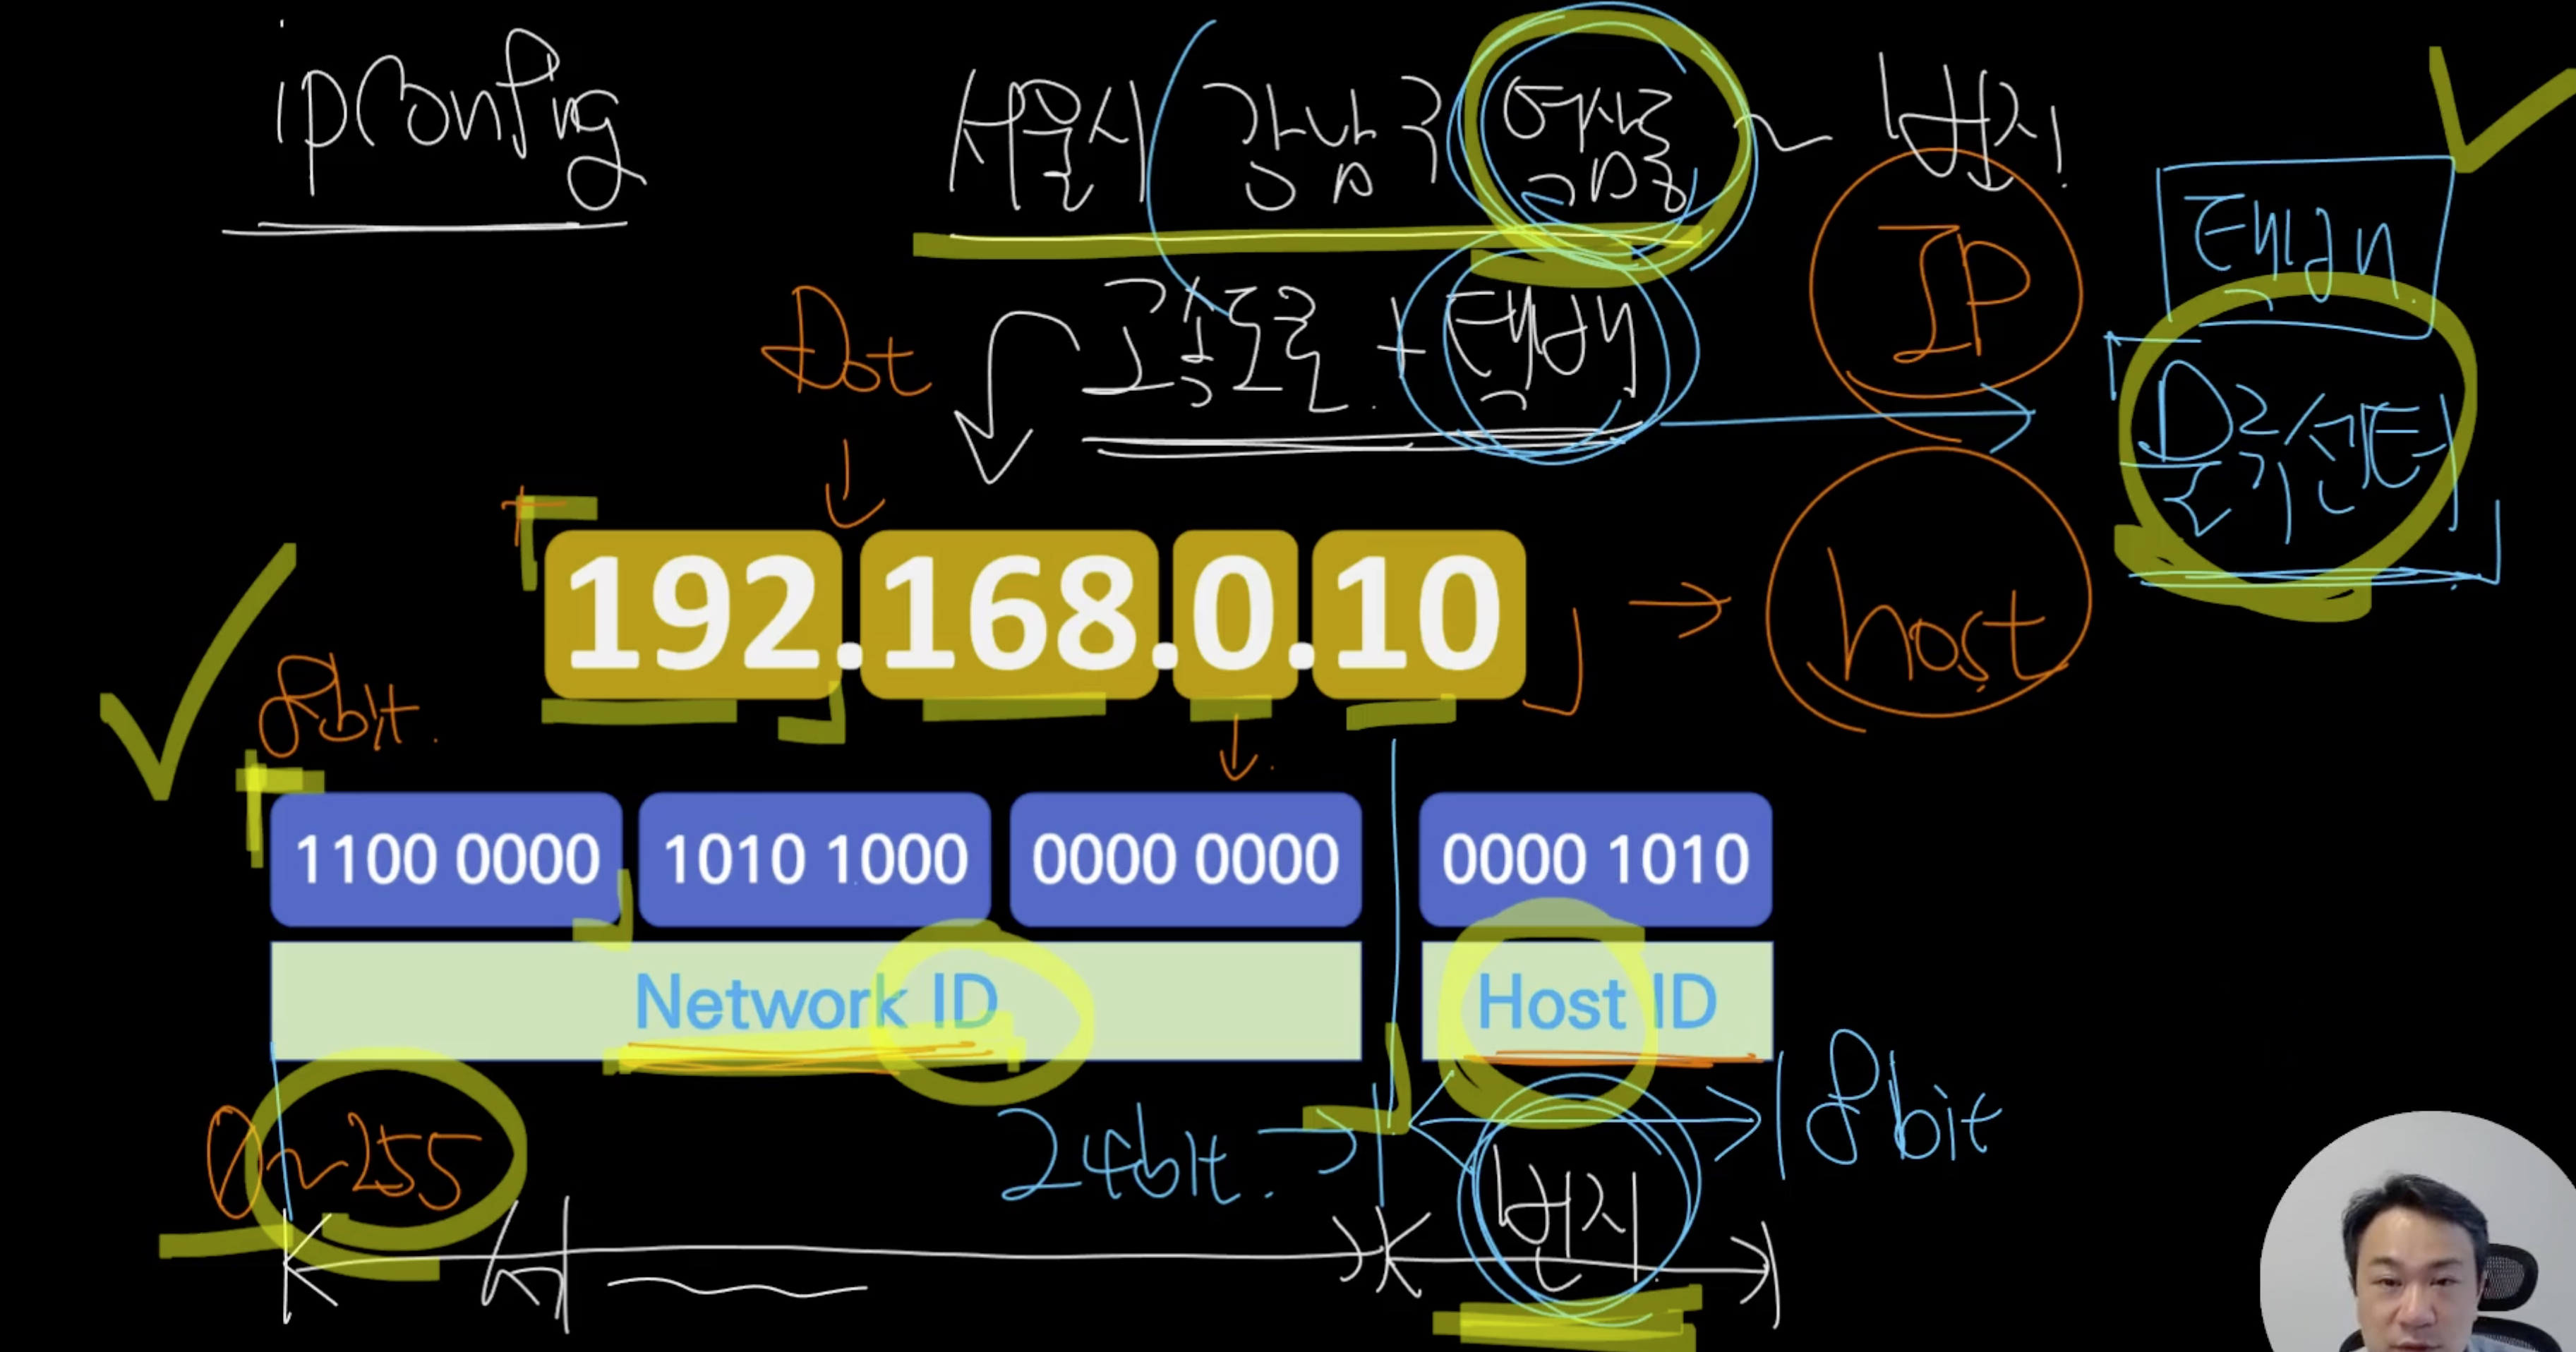 ipconfig
서울시 강남구 역삼동 ~ 번지!
IP
택배
Dot
+ 택배
192.168.0.10
host
8bit.
1100 0000 1010 1000 0000 0000 0000 1010
Network ID
Host ID
0~255
24bit.
8bit
서
번지